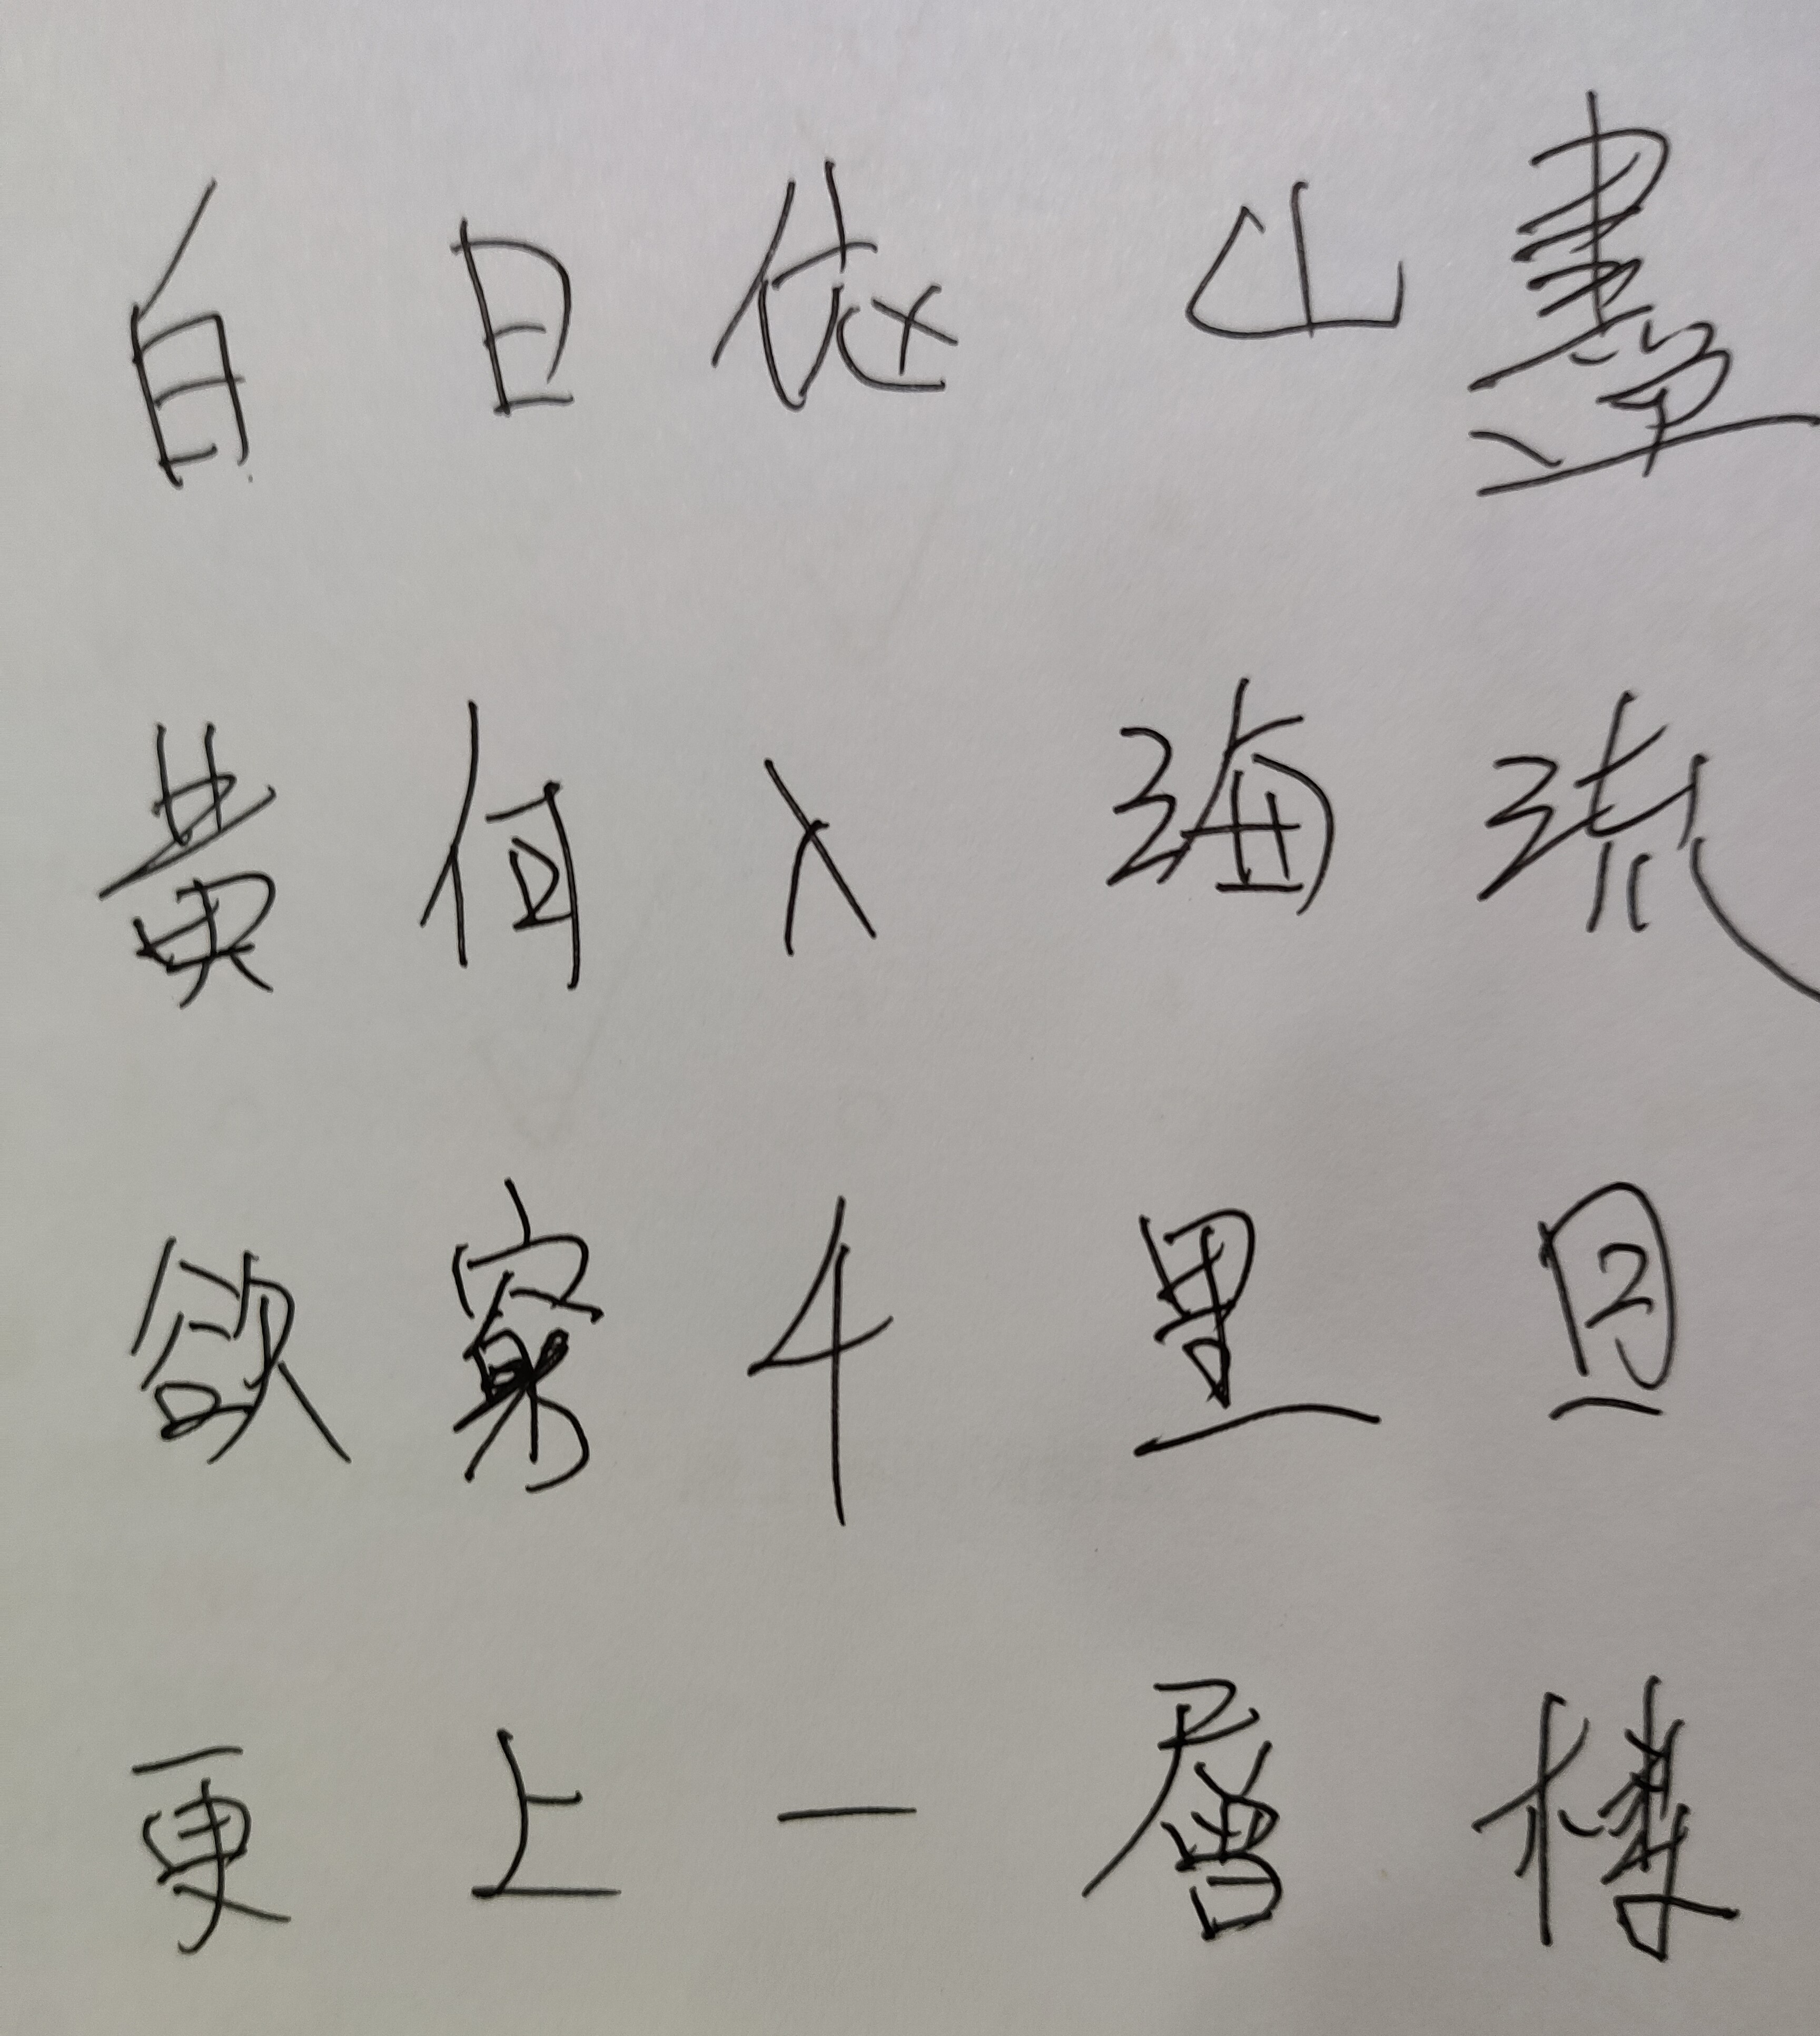 白日依山盡
黄何入海流
欲千里目
更上一層樓